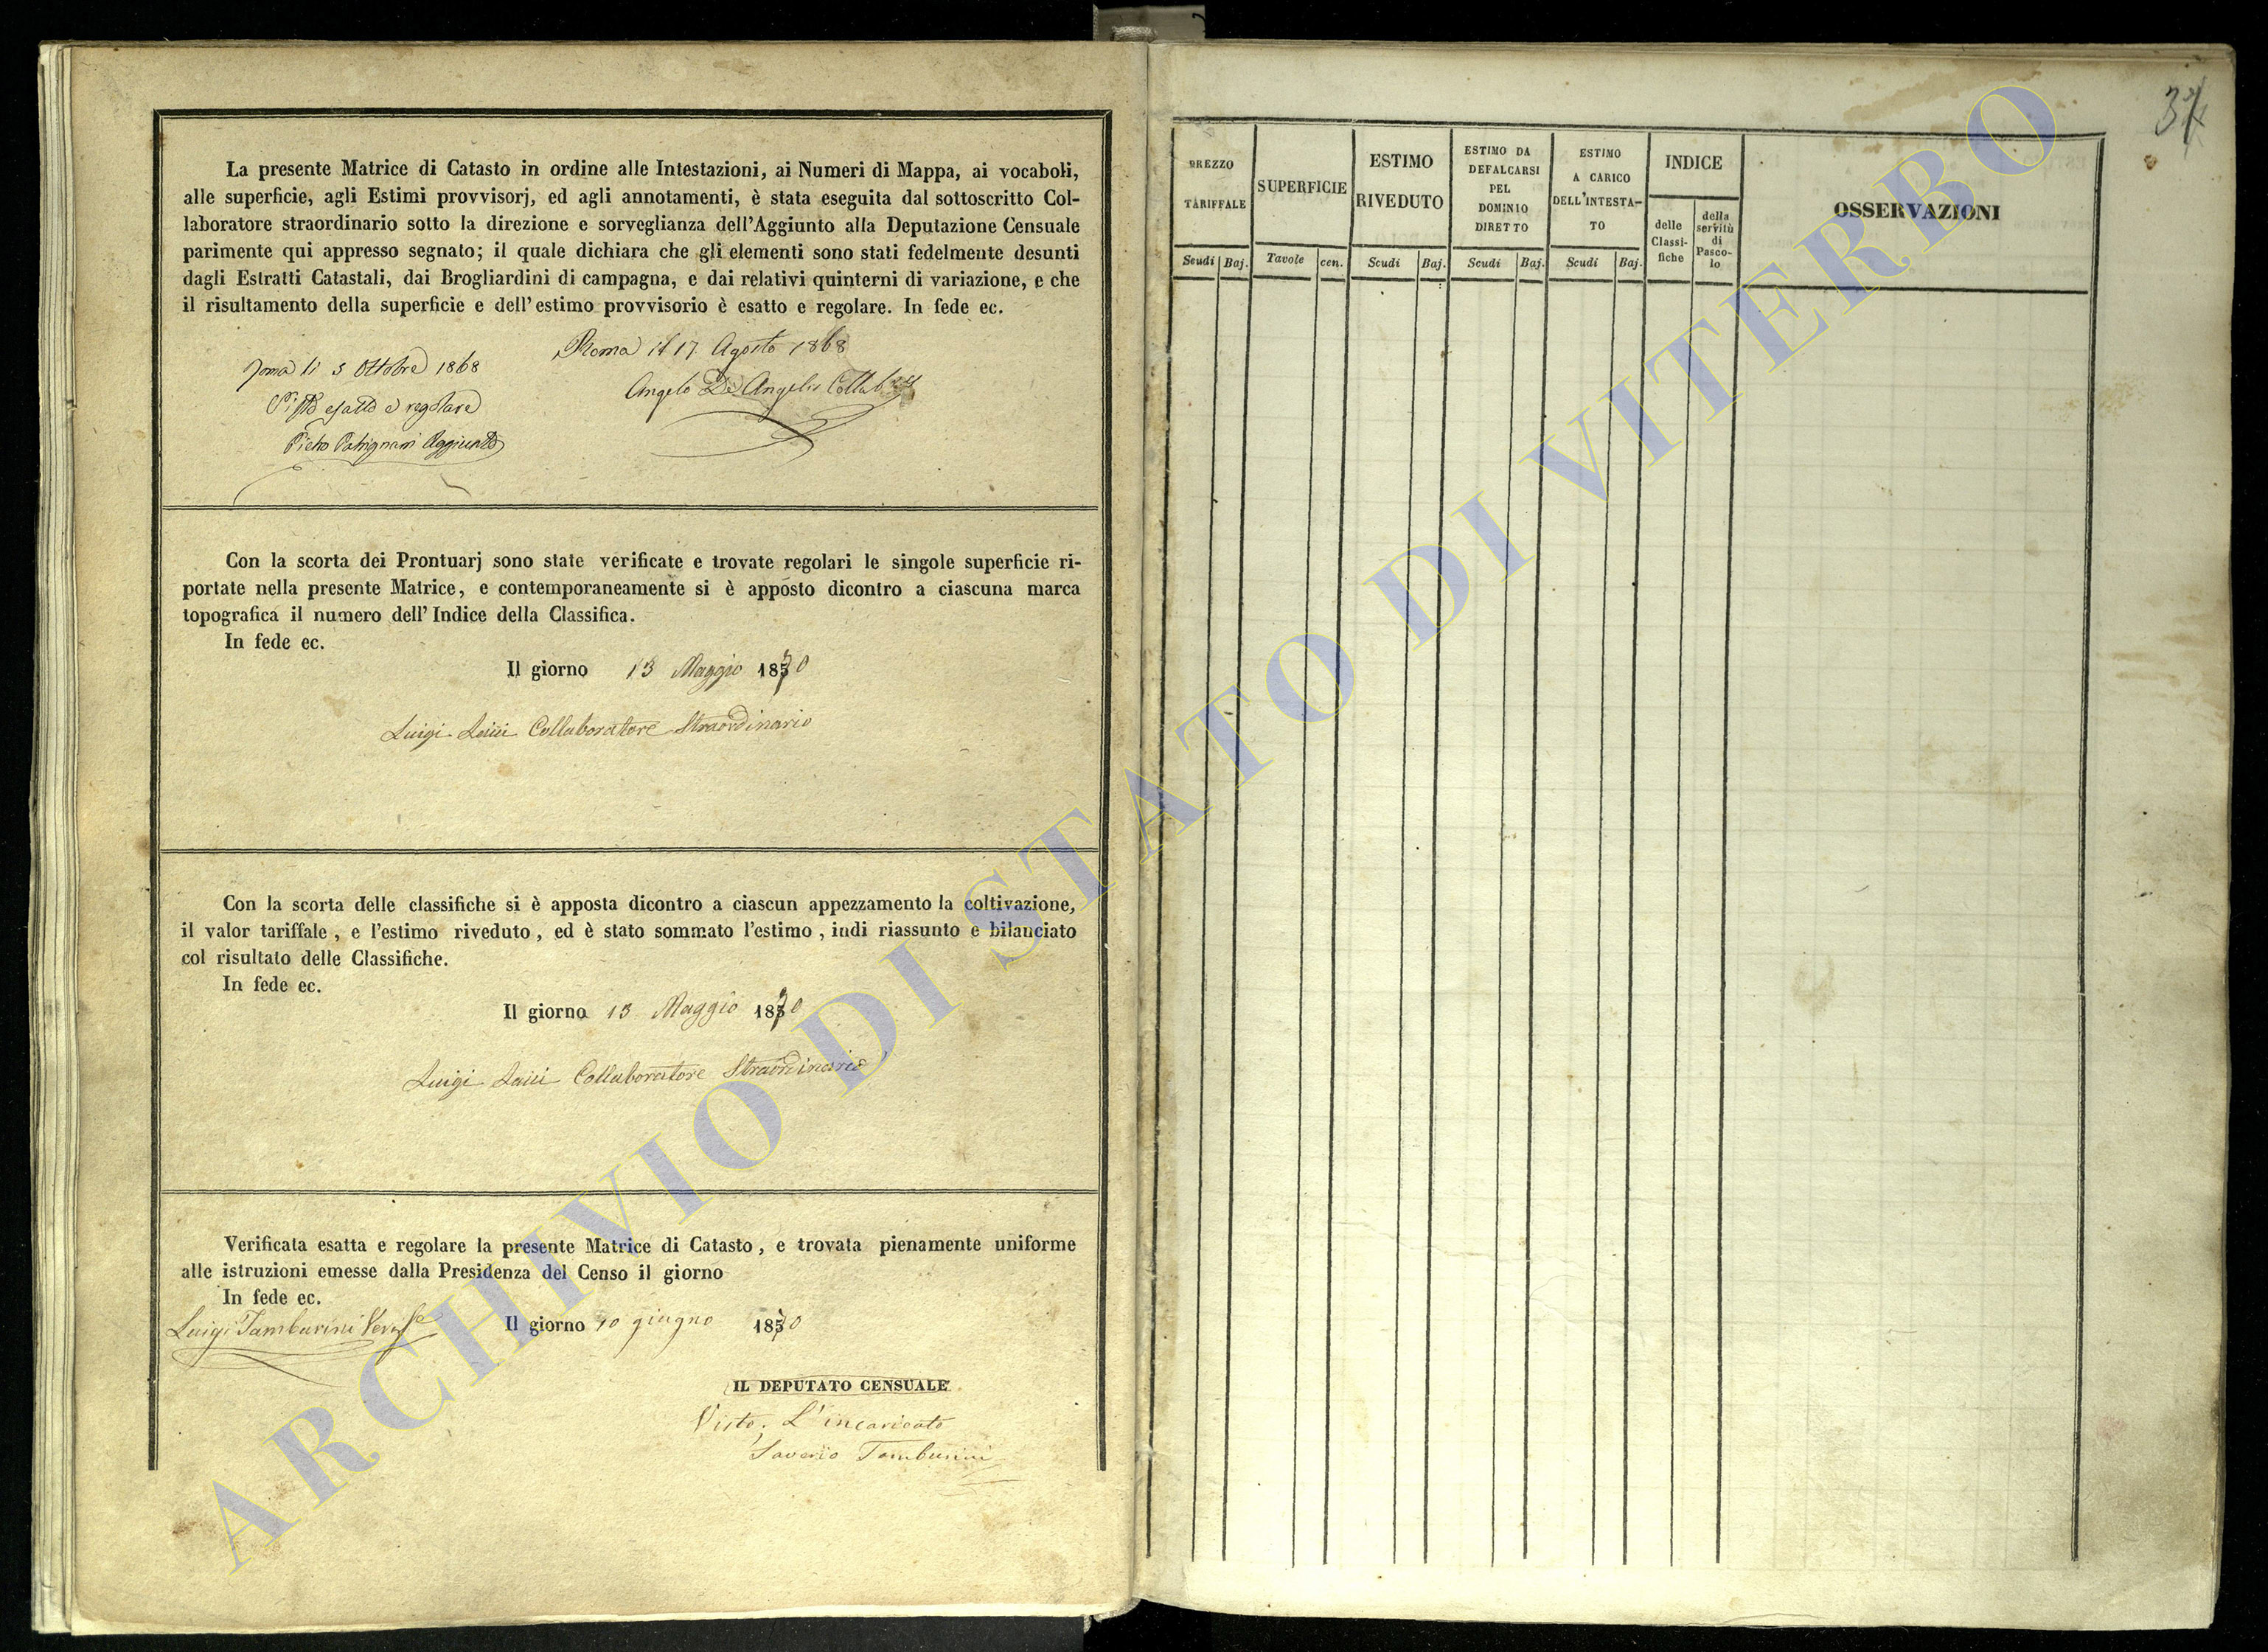 La presente Matrice di Catasto in ordine alle Intestazioni, ai Numeri di Mappa, ai vocaboli,
alle superficie, agli Estimi provvisorj, ed agli annotamenti, è stata eseguita dal sottoscritto Col-
laboratore straordinario sotto la direzione e sorveglianza dell'Aggiunto alla Deputazione Censuale
parimente qui appresso segnato; il quale dichiara che gli elementi sono stati fedelmente desunti
dagli Estratti Catastali, dai Brogliardini di campagna, e dai relativi quinterni di variazione, e che
il risultamento della superficie e dell'estimo provvisorio è esatto e regolare. In fede ec.
Roma il 17 Agosto 1868
Angelo De Angelis
Roma li 3 Ottobre 1868
esatto e regolare
Pietro Patrignani Aggiunto
Con la scorta dei Prontuarj sono state verificate e trovate regolari le singole superficie ri-
portate nella presente Matrice, e contemporaneamente si è apposto dicontro a ciascuna marca
topografica il numero dell'Indice della Classifica.
In fede ec.
Il giorno 13 Maggio 1870
Luigi Collaboratore Straordinario
Con la scorta delle classifiche si è apposta dicontro a ciascun appezzamento la coltivazione,
il valor tariffale, e l'estimo riveduto, ed è stato sommato l'estimo, indi riassunto e bilanciato
col risultato delle Classifiche.
In fede ec.
Il giorno 13 Maggio 1870
Luigi Collaboratore Straordinario
Verificata esatta e regolare la presente Matrice di Catasto, e trovata pienamente uniforme
alle istruzioni emesse dalla Presidenza del Censo il giorno
In fede ec.
Luigi Tamburini
Il giorno 10 giugno 1870
IL DEPUTATO CENSUALE
Visto, L'incaricato
Saverio Tamburini
PREZZO
TARIFFALE
Scudi Baj.
SUPERFICIE
Tavole cen.
ESTIMO
RIVEDUTO
Scudi Baj.
ESTIMO DA
DEFALCARSI
PEL
DOMINIO
DIRETTO
Scudi Baj.
ESTIMO
A CARICO
DELL'INTESTA-
TO
Scudi Baj.
INDICE
delle
Classi-
fiche
della
servitù
di
Pasco-
lo
OSSERVAZIONI
ARCHIVIO DI STATO DI VITERBO